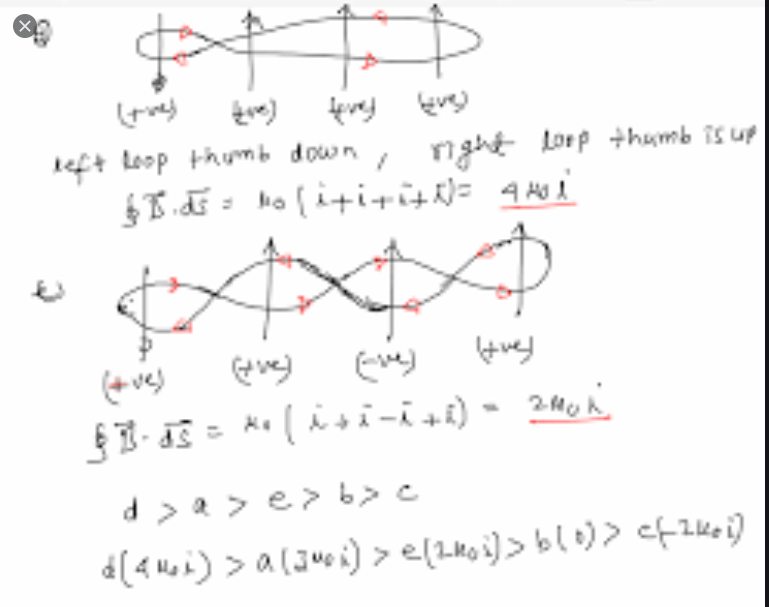 (+ve) (+ve) (+ve) (+ve)
left loop thumb down, right loop thumb is up
∮B⃗.d⃗s = μ₀(i+i+i+i) = 4μ₀i
e)
(+ve) (+ve) (-ve) (+ve)
∮B⃗.d⃗s = μ₀(i+i-i+i) = 2μ₀i
d > a > e > b > c
d(4μ₀i) > a(3μ₀i) > e(2μ₀i) > b(0) > c(-2μ₀i)